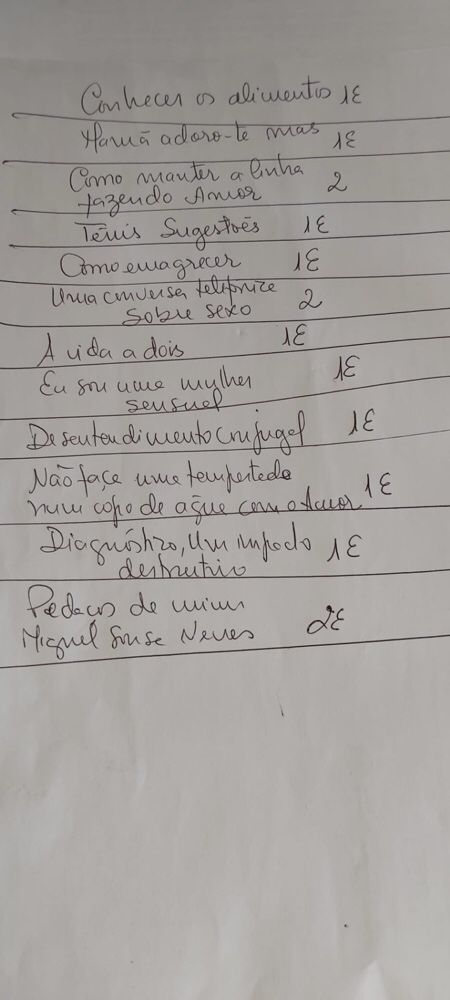 Conhecer os alimentos 1€
Mamã adoro-te mas 1€
Como manter a linha
fazendo Amor 2
Ténis Sugestões 1€
Como emagrecer 1€
Uma conversa telefonica
sobre sexo 2
A vida a dois 1€
Eu sou uma mulher 1€
sensual
Desentendimento Conjugal 1€
Não faça uma tempestade
num copo de água com o Amor 1€
Diagnóstico, Um 1€
destrutivo
Pedaços de mim
Miguel Sousa Neves 2€